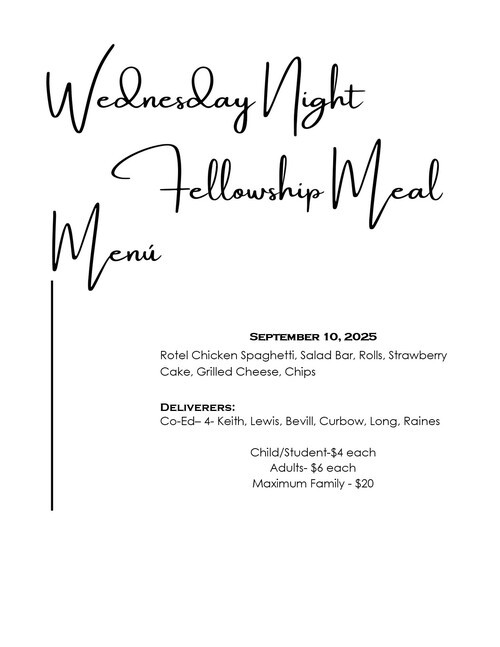 Wednesday Night
Fellowship Meal
Menú
September 10, 2025
Rotel Chicken Spaghetti, Salad Bar, Rolls, Strawberry
Cake, Grilled Cheese, Chips
Deliverers:
Co-Ed– 4- Keith, Lewis, Bevill, Curbow, Long, Raines
Child/Student-$4 each
Adults- $6 each
Maximum Family - $20